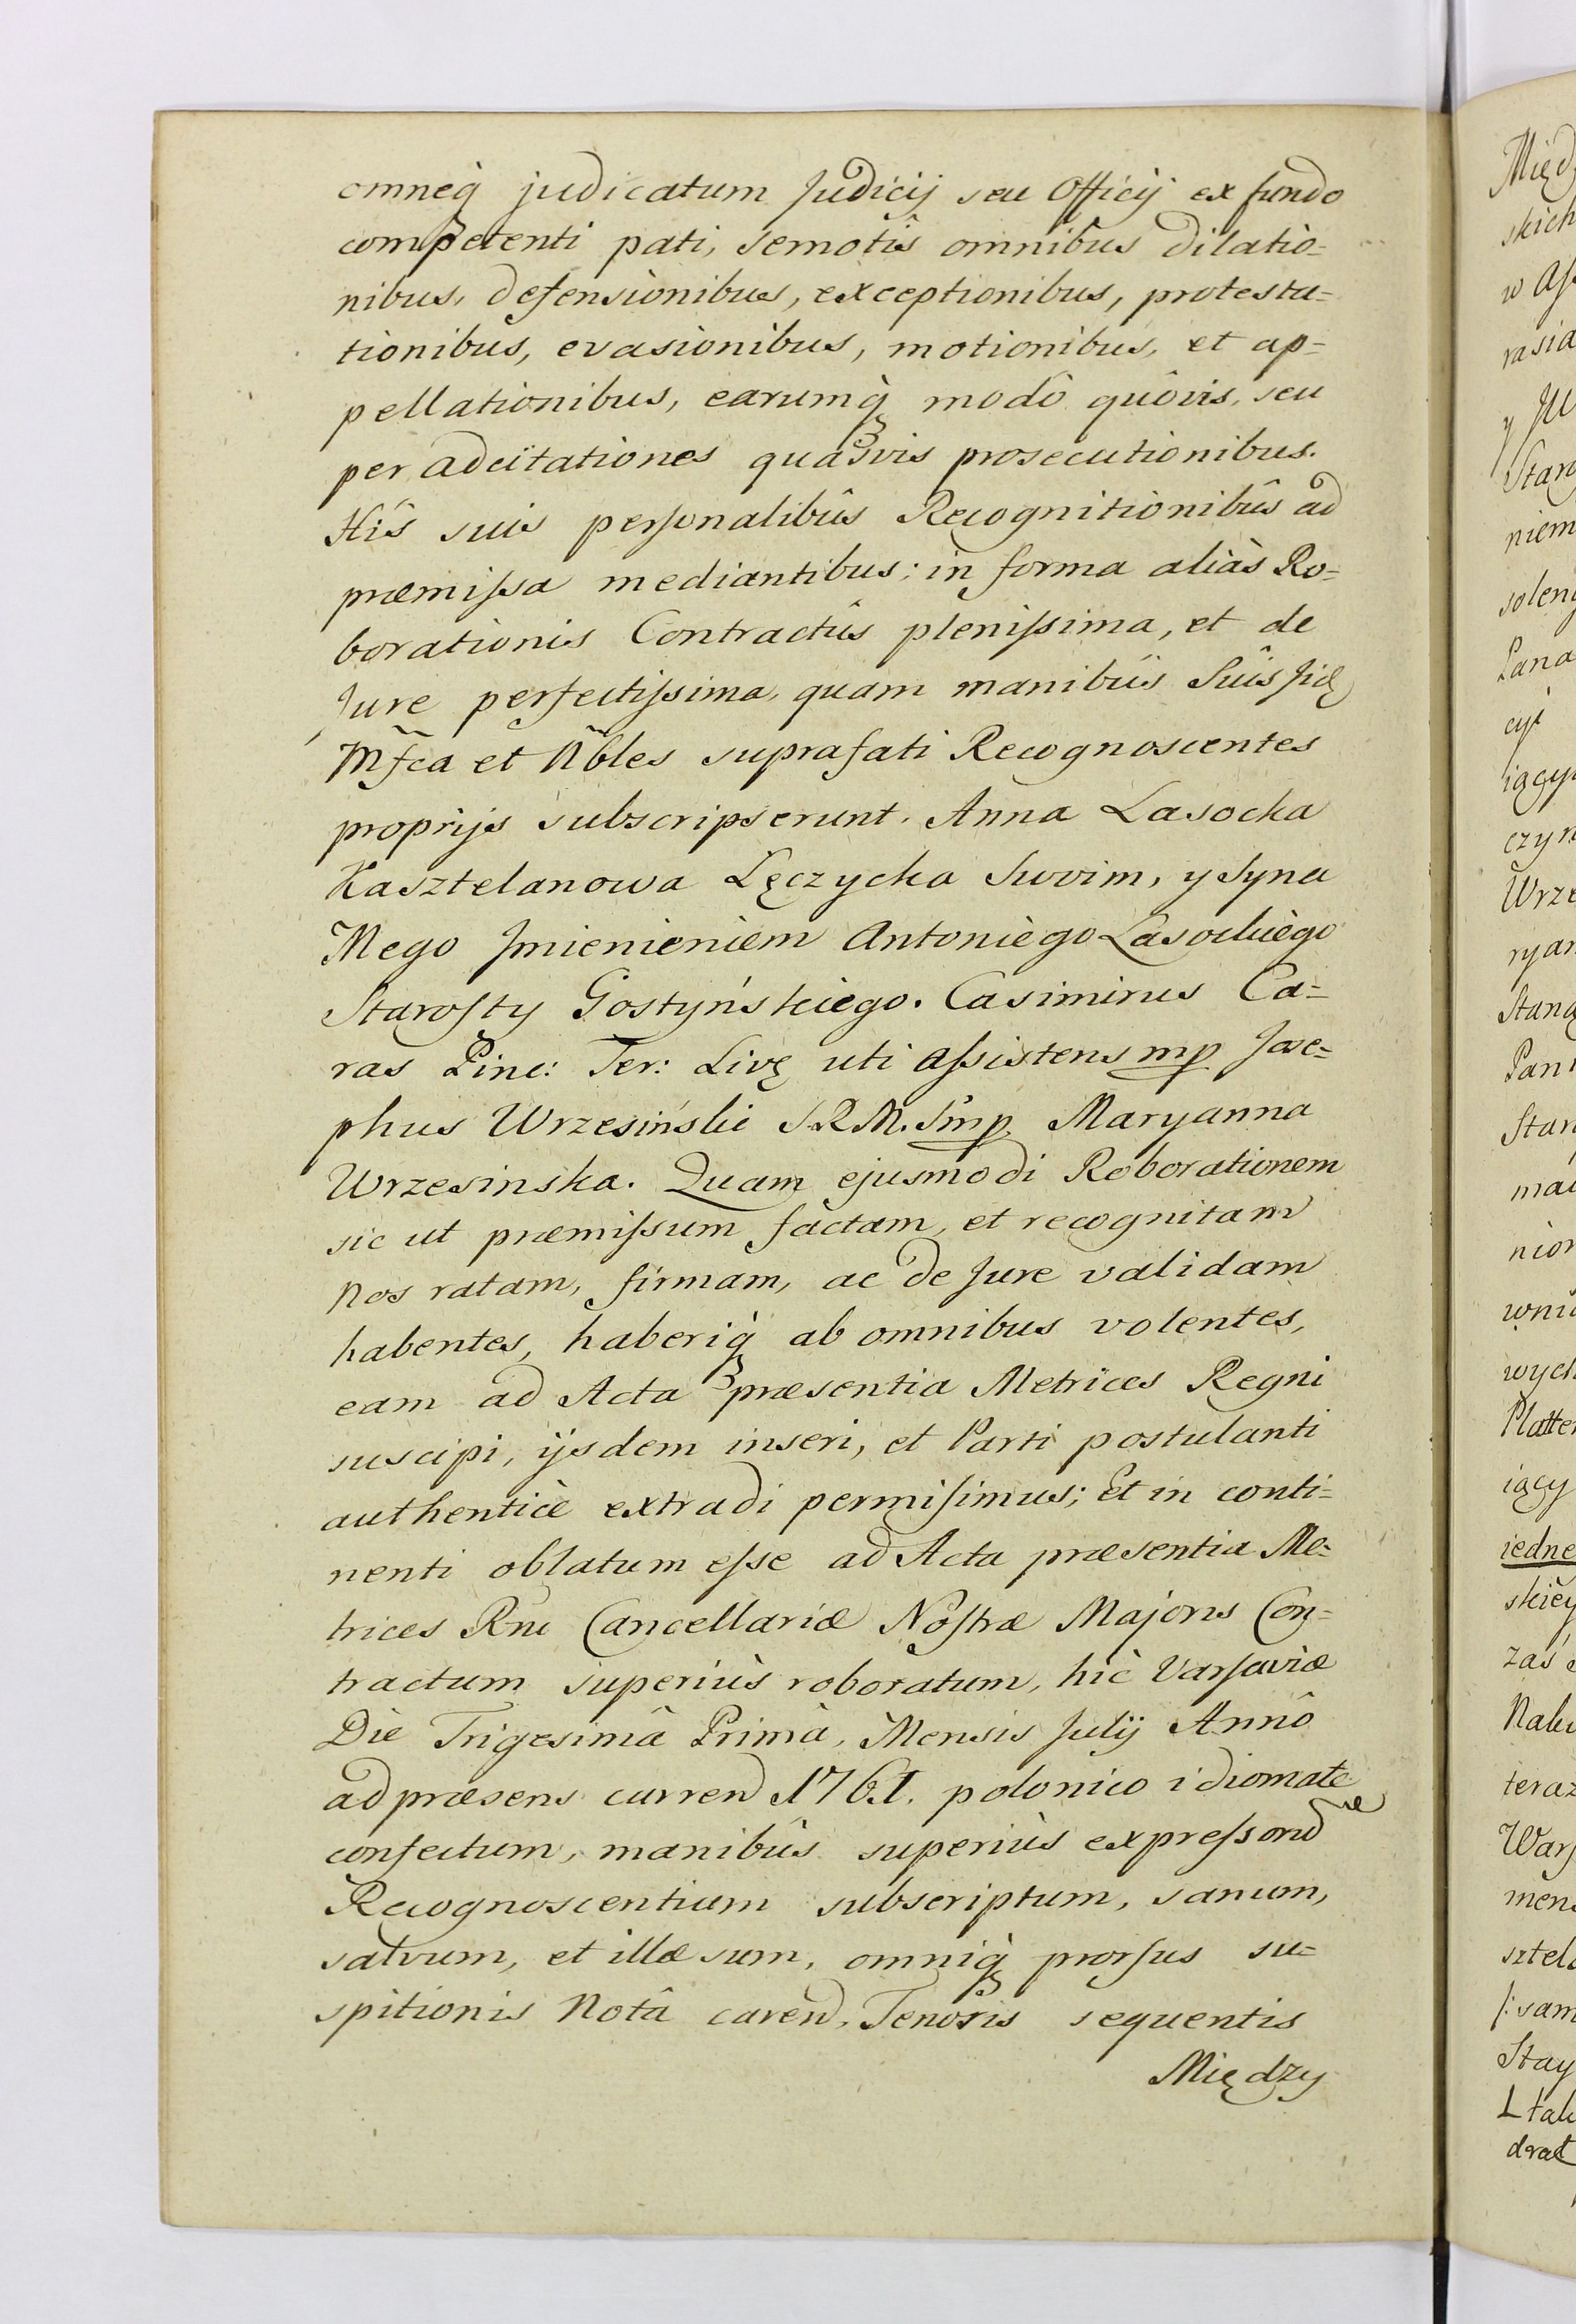 omneq́ judicatum Judicij seu Officij ex fundo
competenti pati, semotîs omnibûs dilatio=
nibus, defensionibus, exceptionibus, protesta=
tionibus, evasionibus, motionibus, et ap=
pellationibus, earumq́ modô quôvis, seu
per adcitationes quasvis prosecutionibus.
Hîs suis perſonalibûs Recognitionibûs ad
præmiſsa mediantibus; in forma aliàs Ro=
borationis Contractûs pleniſsima, et de
Jure perfectiſsima, quam manibûs Suîs
Mfca et Nbles suprafati Recognoscentes
proprijs subscripserunt. Anna Lasocka
Kasztelanowa Łęczycka Swoim, y Syna
Mego Jmienieniem Antoniego Lasockiego
Staroſty Gostyńskiego. Casimirus Ca=
ras Pinc: Ter: Livę uti aſsistens mp Jose=
phus Wrzesiński S.R.M. S mp Maryanna
Wrzesinska. Quam ejusmodi Roborationem
sic ut præmiſsum factam, et recognitam
Nos ratam, firmam, ac de Jure validam
habentes, haberiq́ ab omnibus volentes,
eam ad Acta præsentia Metrices Regni
suscipi, ijsdem inseri, et Parti postulanti
authenticè extradi permiſimus; Et in conti=
nenti oblatum eſse ad Acta præsentia Me=
trices Rni Cancellariæ Noſtræ Majoris Con=
tractum superiùs roboratum, hîc Varſaviæ
Die Trigesimâ Primâ, Mensis Julij Annô
ad præsens curren 1761. polonico idiomate
confectum, manibûs superiùs expreſsorũ
Recognoscentium subscriptum, sanum,
salvum, et illæsum, omniq́ prorſus su=
spitionis Notâ caren, Tenoris sequentis
Między